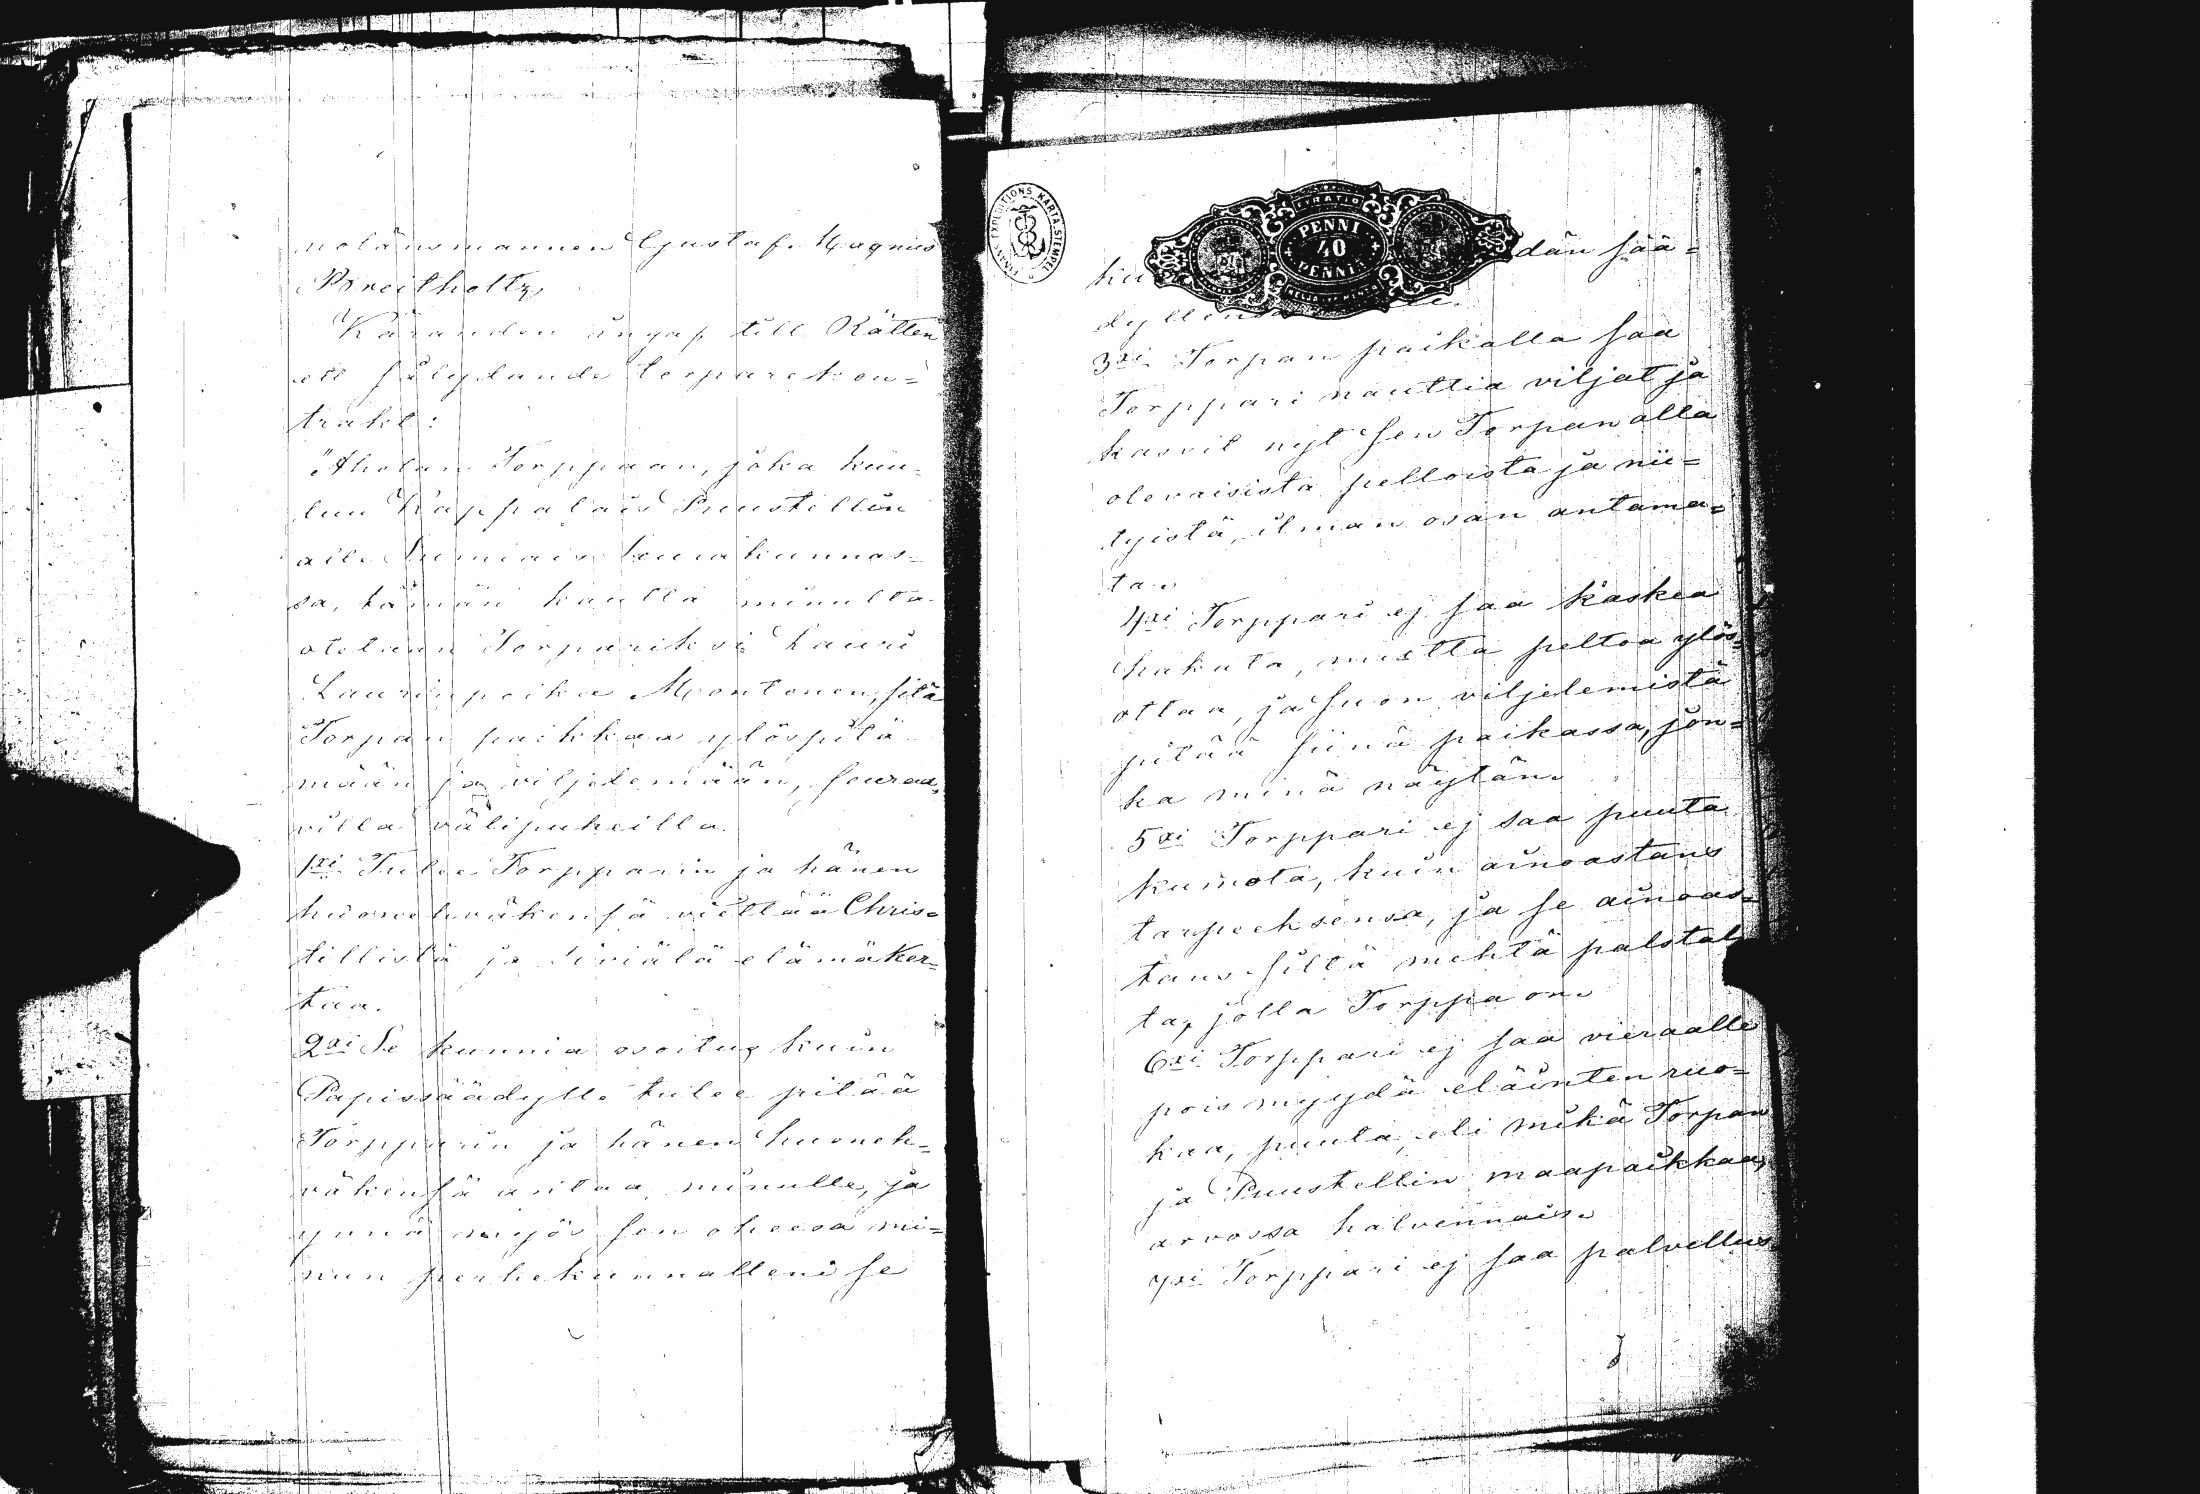 nolänsmannen Gustaf Magnus
Breitholtz,
Käranden ingaf till Rätten
ett följande torparekon=
trakt:
"Aholan Torppaan, joka kuu=
luu Kappalais Puustellin
alle Sumiais Seurakunnas=
sa, tämän kautta minulta
otetaan Torpariksi Lauri
Laurinpoika Montonen, sitä
Torpan paikkaa ylöspitä=
mään ja viljelemään, seuraa=
villa välipuheilla.
1xi Tulee Torpparin ja hänen
huonehväkensä viettää Chris=
tillistä ja siviätä elämäker=
taa.
2xi Se kunnia osoitus kuin
Papissäädylle tulee pitää
Torpparin ja hänen huoneh=
väkensä antaa minulle, ja
ynnä myös sen oheesa mi=
nun perhekunnalleni se
FINANS EXPEDITIONS KARTA STEMPEL
PENNI
40
PENNIÄ
ku dän sää=
dyllensä
3xi Torpan paikalla saa
Torppari nauttia viljat ja
kasvit nyt sen Torpan alla
olevaisista pelloista ja nii=
tyistä, ilman osan antama=
ta.
4xi Torppari ej saa kaskea
hakata, mutta peltoa ylös=
ottaa, ja suon viljelemistä
pitää siinä paikassa, jon=
ka minä näytän.
5xi Torppari ej saa puuta
kumota, kuin ainoastans
tarpeeksensa, ja se ainoas=
tans siltä mehtä palstal
ta, jolla Torppa on.
6xi Torppari ej saa vieraalle
pois myydä eläinten ruo=
kaa, puuta eli mikä Torpan
ja Puustellin maapaikkaa,
arvossa halvennais.
7xi Torppari ej saa palvellus